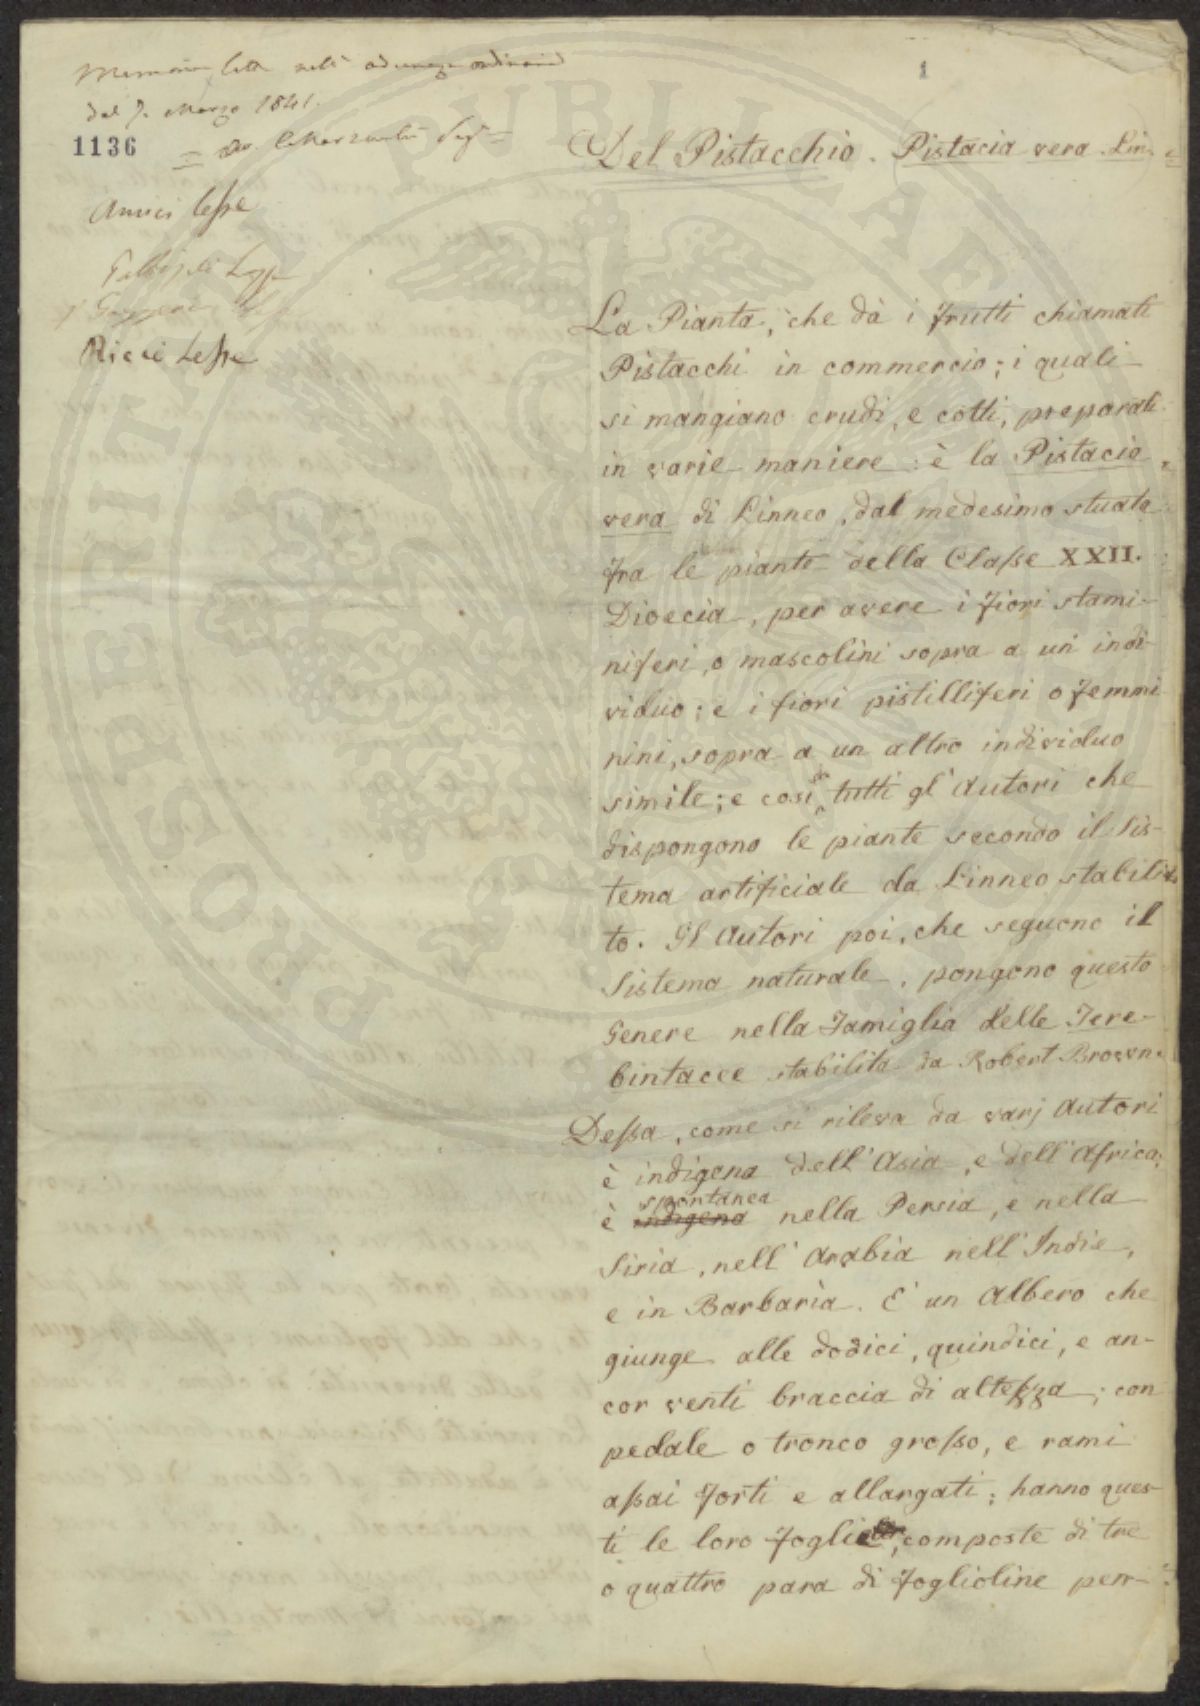 1
Memoria letta nell' adunanza ordinaria
del 7. Marzo 1841.
1136
Amici lesse
Ricci Lesse
Del Pistacchio. Pistacia vera Lin.
La Pianta, che dà i frutti chiamati
Pistacchi in commercio; i quali
si mangiano crudi, e cotti, preparati
in varie maniere: è la Pistacia
vera di Linneo, dal medesimo situata
fra le piante della Classe XXII.
Dioecia, per avere i fiori stami-
niferi, o mascolini sopra a un indi-
viduo; e i fiori pistilliferi o femmi
nini, sopra a un altro individuo
simile; e così da tutti gl'Autori che
dispongono le piante secondo il Sis-
tema artificiale da Linneo stabili
to. Gl'Autori poi, che seguono il
Sistema naturale, pongono questo
Genere nella Famiglia delle Tere-
bintacee stabilita da Robert Brown.
Dessa, come si rileva da varj Autori
è indigena dell'Asia, e dell'Africa;
spontanea
è indigena nella Persia, e nella
Siria, nell'Arabia nell'Indie,
e in Barbaria. E' un Albero che
giunge alle dodici, quindici, e an-
cor venti braccia di altezza; con
pedale o tronco grosso, e rami
assai forti e allargati; hanno ques-
ti le loro foglie, composte di tre
o quattro para di foglioline per-
PROSPERITATI PUBLICAE